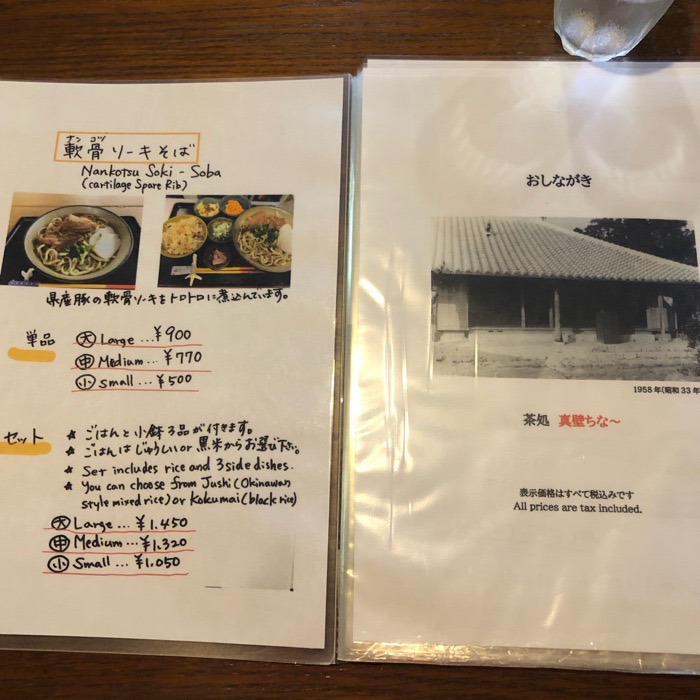 ナンコツ
軟骨ソーキそば
Nankotsu Soki - Soba
(cartilage Spare Rib)
県産豚の軟骨ソーキをトロトロに煮込んでいます。
単品
大 Large ... ¥900
中 Medium ... ¥770
小 Small ... ¥500
セット
★ ごはんと小鉢3品が付きます。
★ ごはんはじゅうしい or 黒米からお選び下さい。
★ Set includes rice and 3 side dishes.
★ You can choose from Jushi (Okinawan
style mixed rice) or Kokumai (black rice)
大 Large ... ¥1.450
中 Medium ... ¥1.320
小 Small ... ¥1.050
おしながき
1958年(昭和33年
茶処 真壁ちな〜
表示価格はすべて税込みです
All prices are tax included.